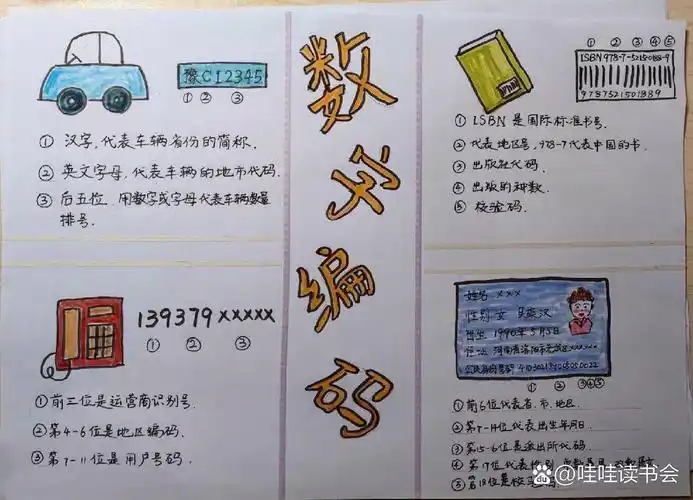 数字编码
豫C12345
① ② ③
① 汉字,代表车辆省份的简称.
② 英文字母,代表车辆的地市代码.
③ 后五位,用数字或字母代表车辆数量
排号.
① ② ③④⑤
ISBN 978-7-5215-0188-9
9787521501889
① ISBN 是国际标准书号.
② 代表地区号,978-7代表中国的书.
③ 出版社代码.
④ 出版的种数.
⑤ 校验码.
139379×××××
① ② ③
①前三位是运营商识别号.
②第4-6位是地区编码.
③第7-11位是用户号码.
姓名 ×××
性别 女 民族 汉
出生 1990年5月5日
河南省洛阳市
公民身份号码
① ② ③④⑤
①前6位代表省.市.地区.
②第7-14位代表出生年月日.
③第15-16位是派出所代码.
④第17位代表性别
⑤第18位是校验码
哇哇读书会